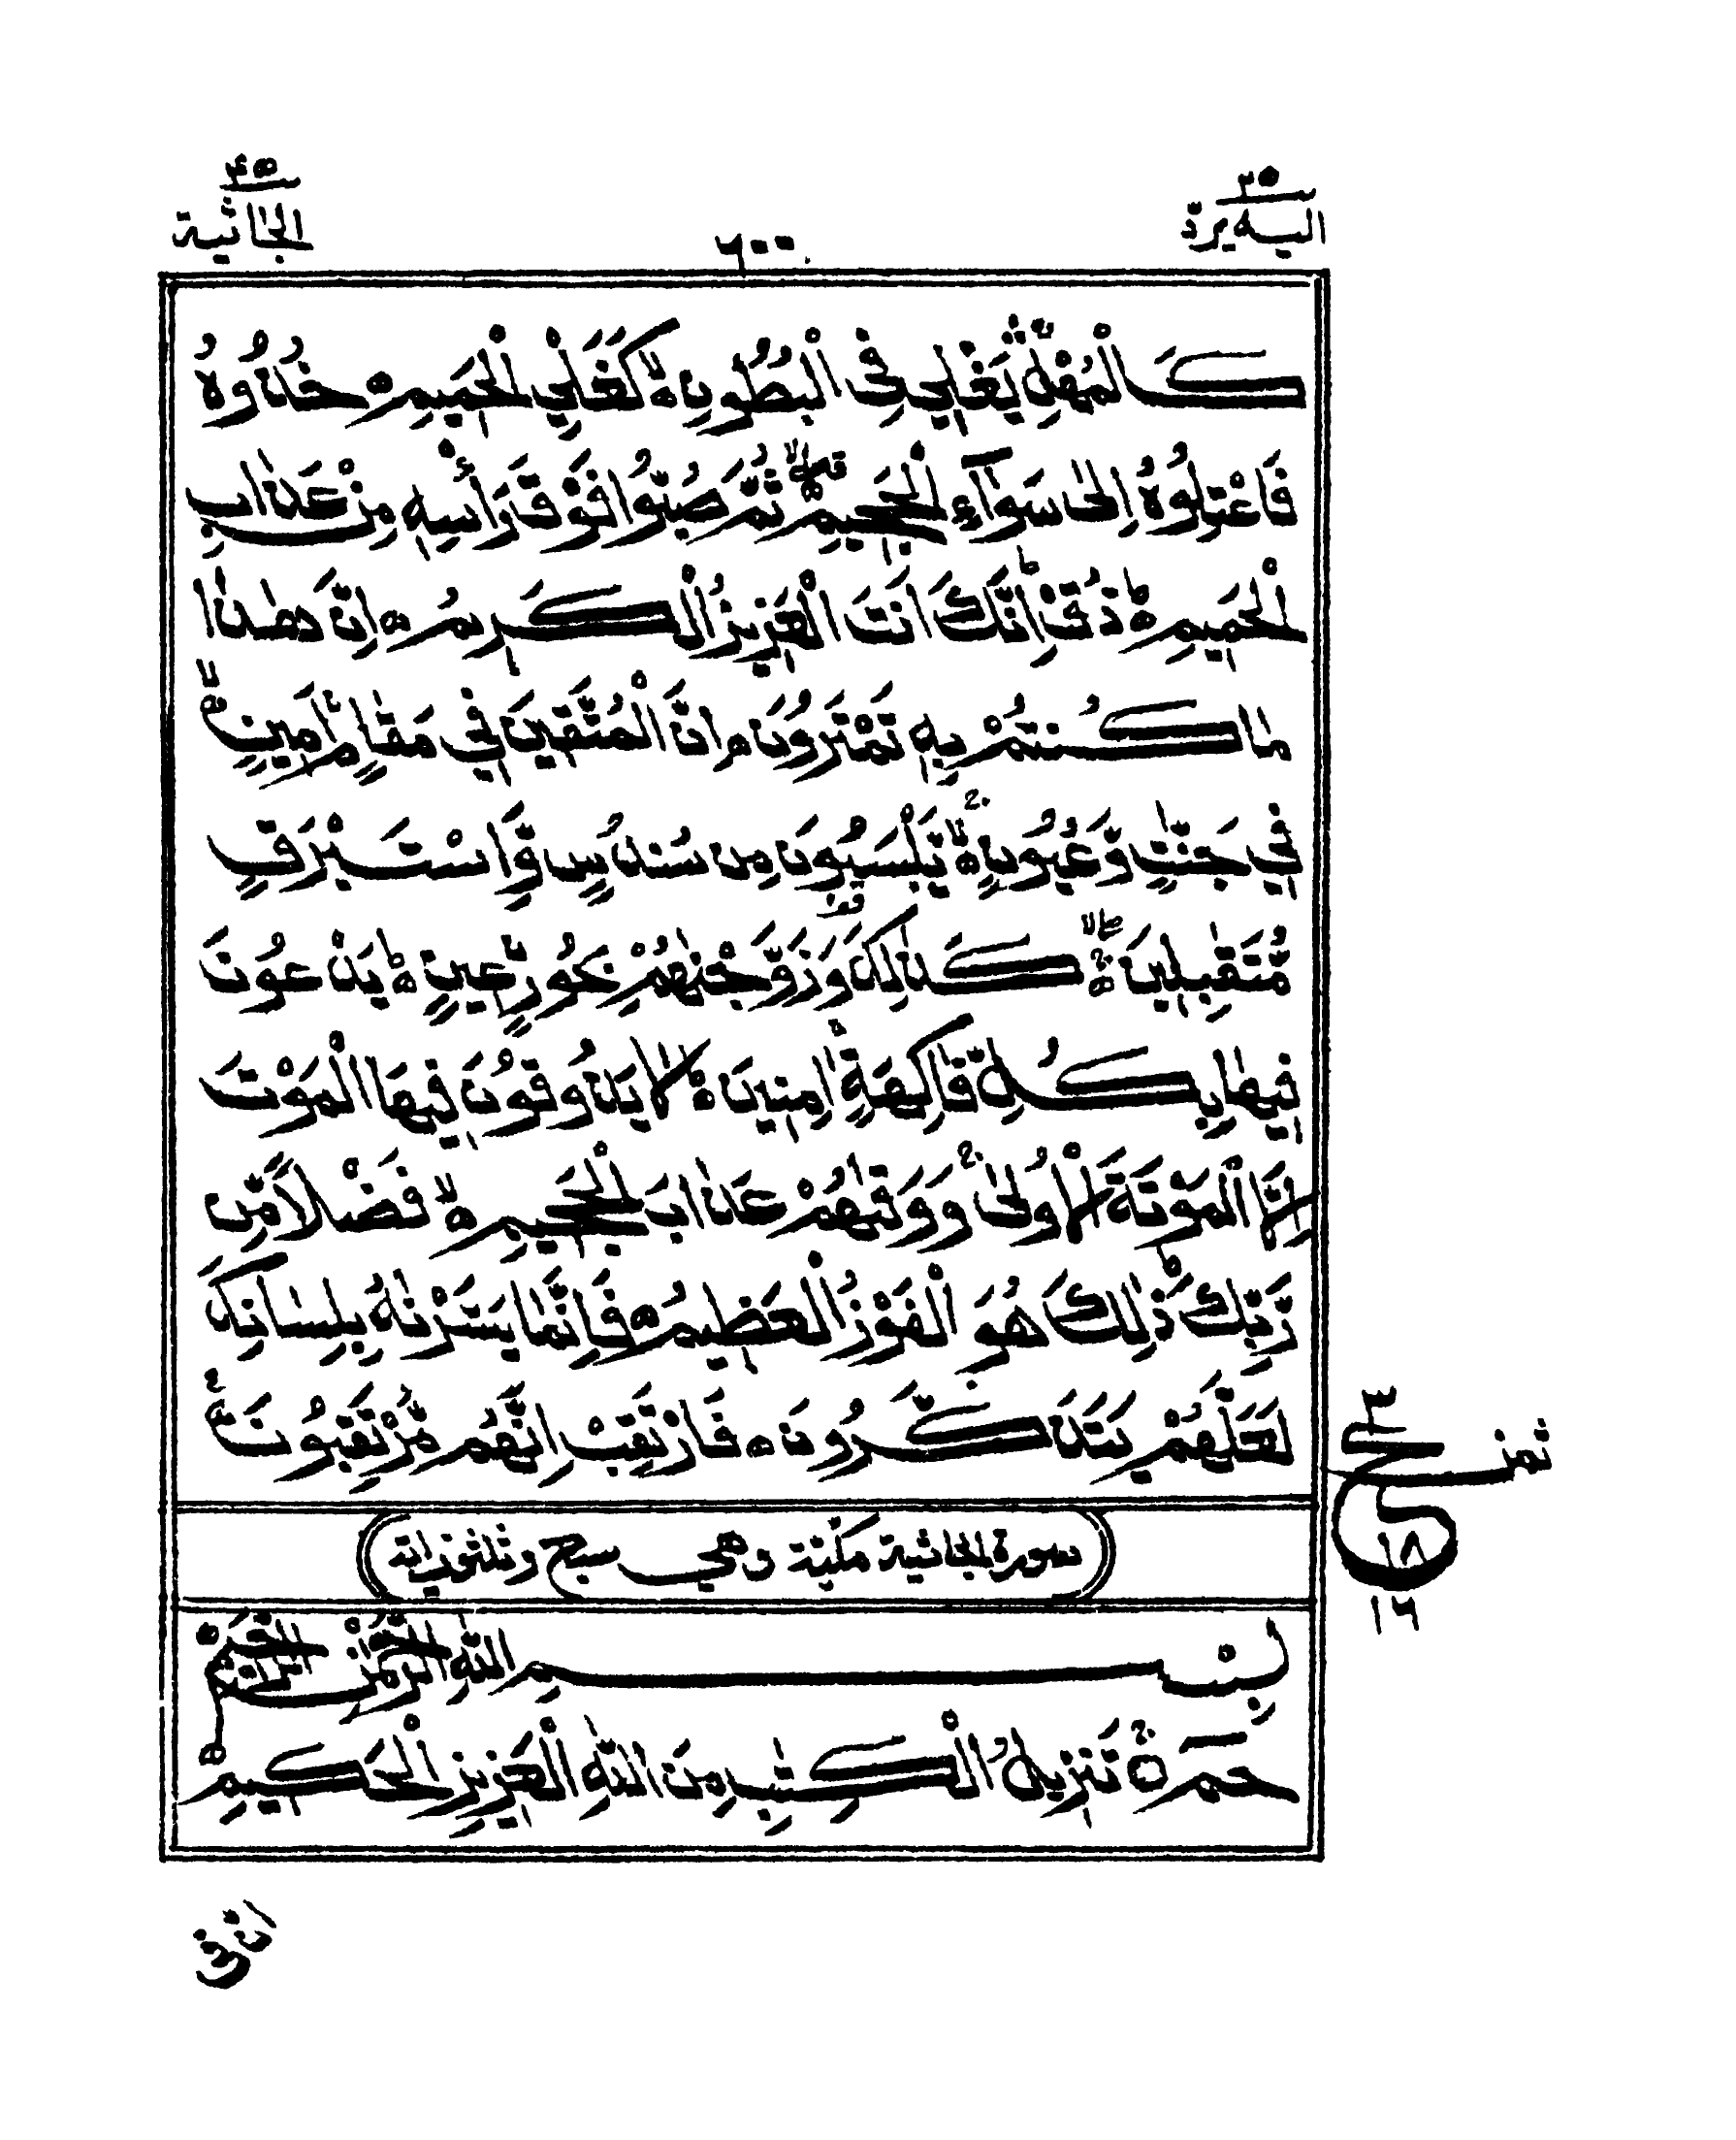 اليه يرد ٢٥
٦٠٠
الجاثية ٤٥
كَالْمُهْلِ ۛۚ يَغْلِي فِي الْبُطُونِ ۙ كَغَلْيِ الْحَمِيمِ ۝ خُذُوهُ
فَاعْتِلُوهُ اِلٰى سَوَآءِ الْجَحِيمِ ۝ ثُمَّ صُبُّوا فَوْقَ رَأْسِهٖ مِنْ عَذَابِ
الْحَمِيمِ ۝ؕ ذُقْ ۙۚ اِنَّكَ اَنْتَ الْعَزِيزُ الْكَرِيمُ ۝ اِنَّ هٰذَا
مَا كُنتُمْ بِهٖ تَمْتَرُونَ ۝ اِنَّ الْمُتَّقِينَ فِي مَقَامٍ اَمِينٍ ۝ۙ
فِي جَنّٰتٍ وَّعُيُونٍ ۝ۙۚ يَّلْبَسُونَ مِن سُندُسٍ وَّاِسْتَبْرَقٍ
مُّتَقٰبِلِينَ ۝ كَذٰلِكَ وَزَوَّجْنٰهُمْ بِحُورٍ عِينٍ ۝ؕ يَدْعُونَ
فِيهَا بِكُلِّ فَاكِهَةٍ اٰمِنِينَ ۝ۙ لَا يَذُوقُونَ فِيهَا الْمَوْتَ
اِلَّا الْمَوْتَةَ الْاُولٰى ۚ وَوَقٰىهُمْ عَذَابَ الْجَحِيمِ ۝ۙ فَضْلًا مِّن
رَّبِّكَ ؕ ذٰلِكَ هُوَ الْفَوْزُ الْعَظِيمُ ۝ فَاِنَّمَا يَسَّرْنٰهُ بِلِسَانِكَ
لَعَلَّهُمْ يَتَذَكَّرُونَ ۝ فَارْتَقِبْ اِنَّهُم مُّرْتَقِبُونَ ۝
ثمن
٣
ع
١٨
١٦
سورة الجاثية مكية وهي سبع وثلثون اية
بِسْمِ اللّٰهِ الرَّحْمٰنِ الرَّحِيمِ
حٰمٓ ۝ۚ تَنزِيلُ الْكِتٰبِ مِنَ اللّٰهِ الْعَزِيزِ الْحَكِيمِ
ان في